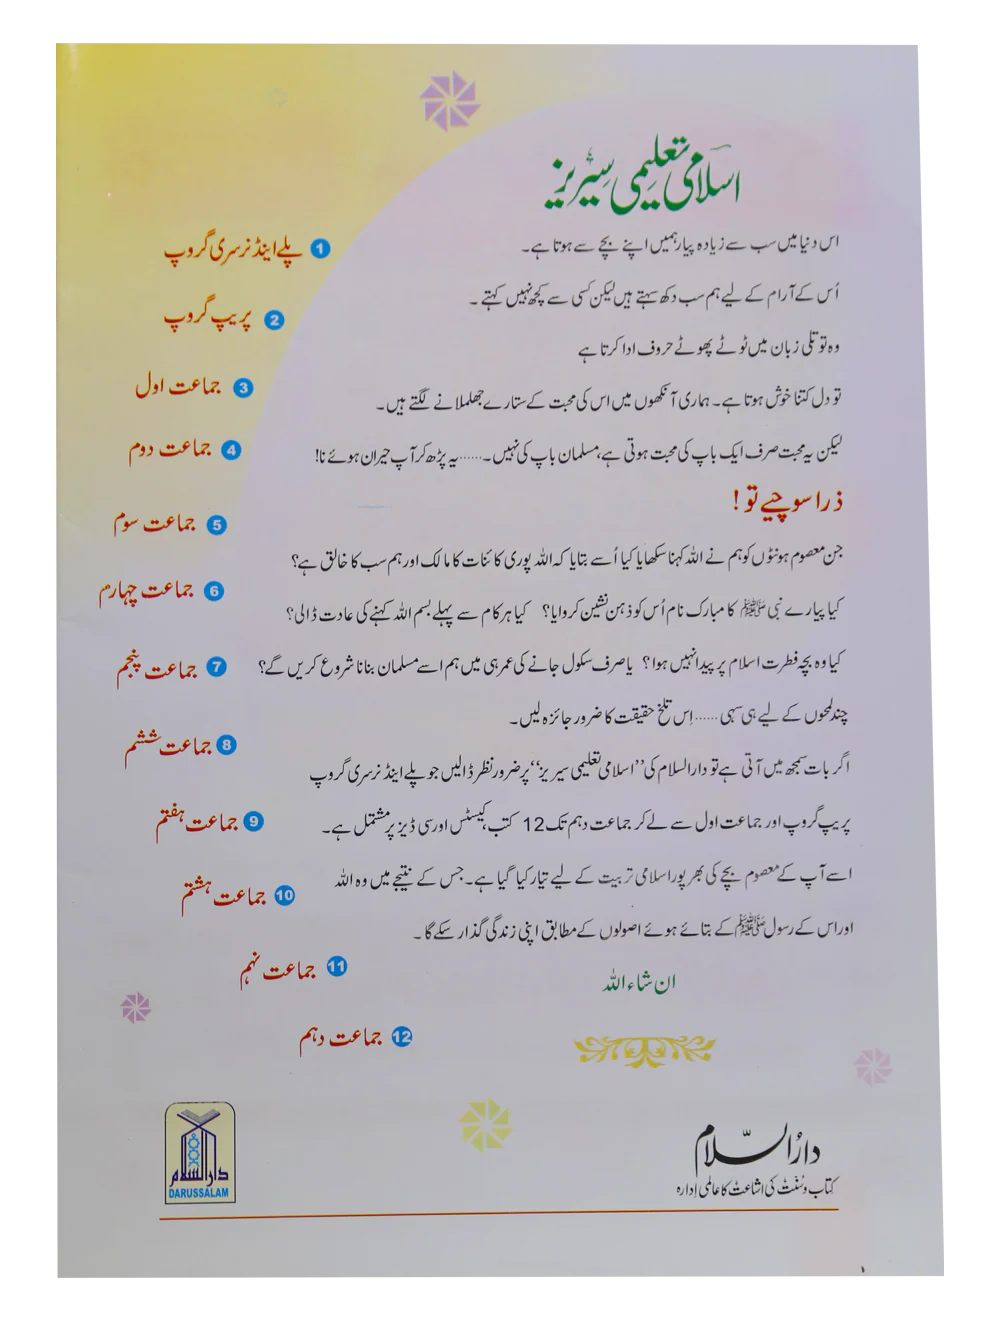 اسلامی تعلیمی سیریز
اس دنیا میں سب سے زیادہ پیار ہمیں اپنے بچے سے ہوتا ہے۔
اُس کے آرام کے لیے ہم سب دکھ سہتے ہیں لیکن کسی سے کچھ نہیں کہتے ۔
وہ توتلی زبان میں ٹوٹے پھوٹے حروف ادا کرتا ہے
تو دل کتنا خوش ہوتا ہے۔ ہماری آنکھوں میں اس کی محبت کے ستارے جھلملانے لگتے ہیں۔
لیکن یہ محبت صرف ایک باپ کی محبت ہوتی ہے، مسلمان باپ کی نہیں۔......یہ پڑھ کر آپ حیران ہوئے نا!
ذرا سوچیے تو !
جن معصوم ہونٹوں کو ہم نے اللہ کہنا سکھایا کیا اُسے بتایا کہ اللہ پوری کائنات کا مالک اور ہم سب کا خالق ہے؟
کیا پیارے نبی ﷺ کا مبارک نام اُس کو ذہن نشین کروایا؟ کیا ہر کام سے پہلے بسم اللہ کہنے کی عادت ڈالی؟
کیا وہ بچہ فطرت اسلام پر پیدا نہیں ہوا؟ یا صرف سکول جانے کی عمر ہی میں ہم اسے مسلمان بنانا شروع کریں گے؟
چند لمحوں کے لیے ہی سہی ...... اِس تلخ حقیقت کا ضرور جائزہ لیں۔
اگر بات سمجھ میں آتی ہے تو دارالسلام کی ”اسلامی تعلیمی سیریز“ پر ضرور نظر ڈالیں جو پلے اینڈ نرسری گروپ
پریپ گروپ اور جماعت اول سے لے کر جماعت دہم تک 12 کتب، کیسٹس اور سی ڈیز پر مشتمل ہے۔
اسے آپ کے معصوم بچے کی بھرپور اسلامی تربیت کے لیے تیار کیا گیا ہے۔ جس کے نتیجے میں وہ اللہ
اور اس کے رسول ﷺ کے بتائے ہوئے اصولوں کے مطابق اپنی زندگی گذار سکے گا ۔
ان شاء اللہ
1 پلے اینڈ نرسری گروپ
2 پریپ گروپ
3 جماعت اول
4 جماعت دوم
5 جماعت سوم
6 جماعت چہارم
7 جماعت پنجم
8 جماعت ششم
9 جماعت ہفتم
10 جماعت ہشتم
11 جماعت نہم
12 جماعت دہم
دارُالسّلام
کتاب و سُنّت کی اشاعت کا عالمی ادارہ
دارالسلام
DARUSSALAM
۱